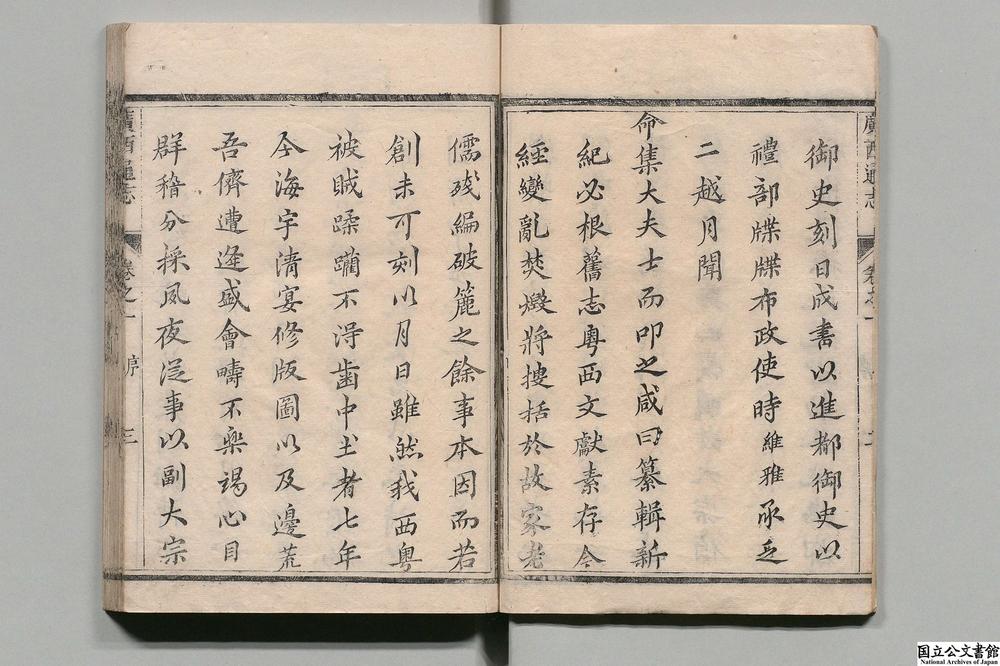 御史刻日成書以進都御史以
禮部牒牒布政使時維雅承乏
二越月聞
命集大夫士而叩之咸曰纂輯新
紀必根舊志粵西文獻素存今
經變亂焚燬將摟括於故家老
儒殘編破簏之餘事本因而若
創未可刻以月日雖然我西粵
被賊蹂躪不淂齒中土者七年
今海宇清宴修版圖以及邊荒
吾儕遭逢盛會疇不樂竭心目
群稽分採夙夜從事以副大宗
廣西通志
卷之一
序
三
廣西通志
卷之一
二
国立公文書館
National Archives of Japan